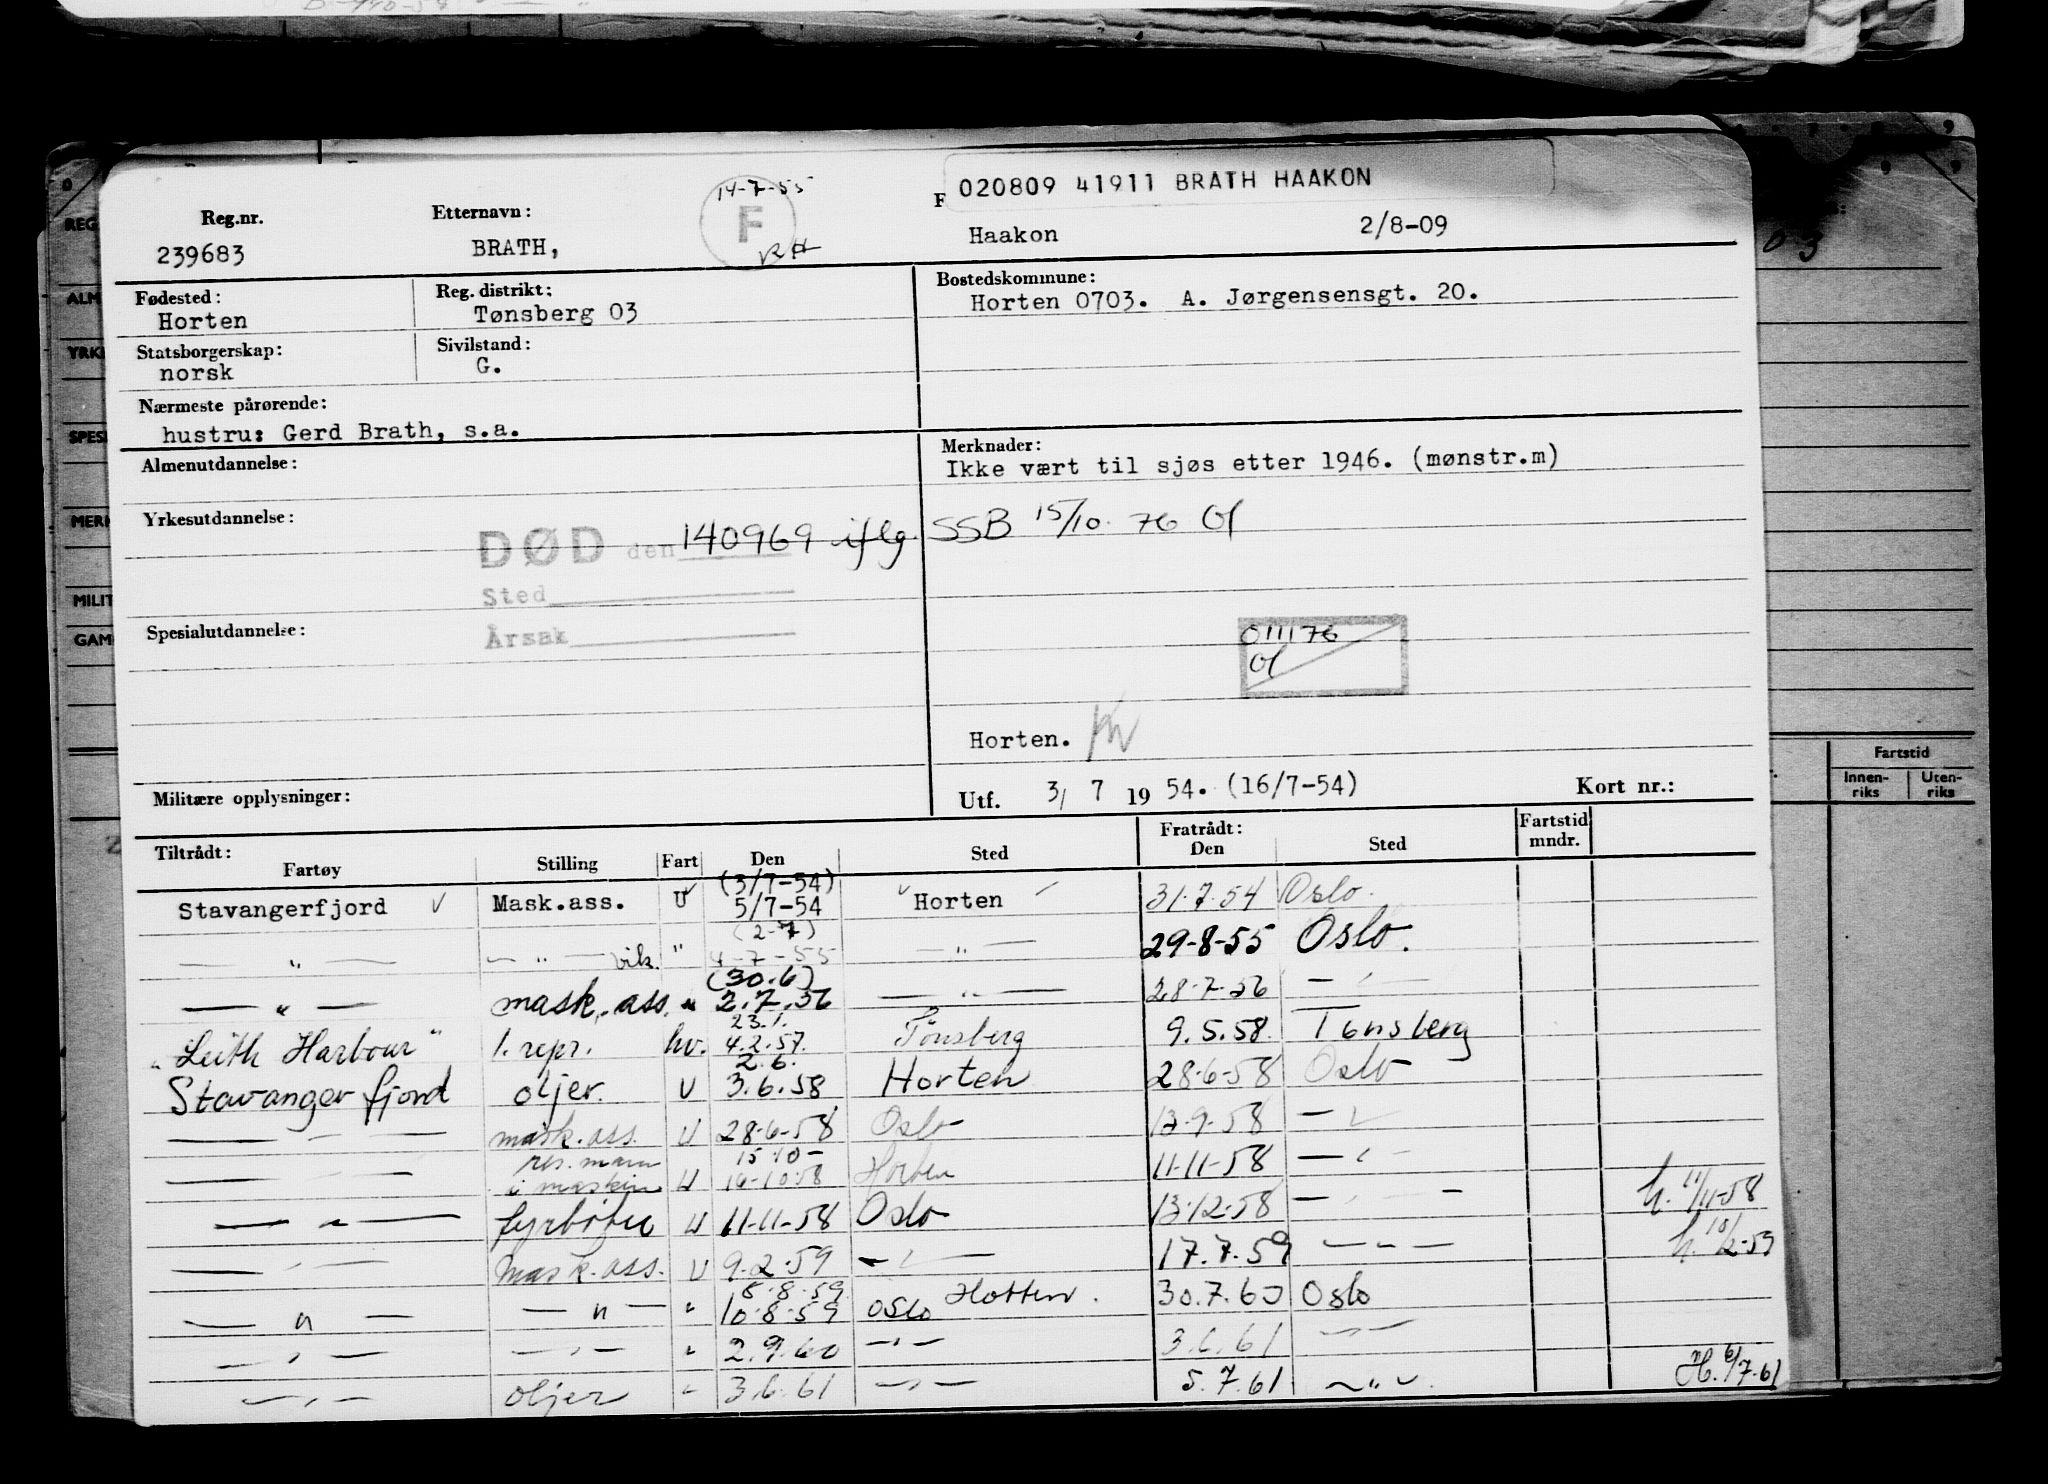 020809 41911 BRATH HAAKON
14-7-55
F
Reg.nr. Etternavn: F
239683 BRATH, Haakon 2/8-09
Fødested: Reg. distrikt: Bostedskommune:
Horten Tønsberg 03 Horten 0703. A. Jørgensensgt. 20.
Statsborgerskap: Sivilstand:
norsk G.
Nærmeste pårørende:
hustru: Gerd Brath, s.a.
Almenutdannelse: Merknader:
Ikke vært til sjøs etter 1946. (mønstr.m)
Yrkesutdannelse:
DØD den 140969 iflg. SSB 15/10. 76
Sted
Spesialutdannelse: Årsak
011176
Horten.
Militære opplysninger: Utf. 3/ 7 1954. (16/7-54) Kort nr.:
Tiltrådt: Fratrådt: Fartstid
Fartøy Stilling Fart Den Sted Den Sted mndr.
(3/7-54)
Stavangerfjord Mask.ass. U 5/7-54 Horten 31.7.54 Oslo.
(2-7)
— " — — " — vik. " 4-7-55 — " — 29-8-55 Oslo.
(30.6)
— " — mask. ass. " 2.7.56 — " — 28.7.56 — " —
23.1.
"Leith Harbour" 1. repr. hv. 4.2.57. Tønsberg 9.5.58. Tønsberg
2.6.
Stavangerfjord oljer. U 3.6.58 Horten 28-6-58 Oslo
— " — mask. ass. U 28-6-58 Oslo 13-9-58 — " —
res. mann 15-10-
— " — i maskin U 16-10-58 Horten 11-11-58 — " —
— " — fyrbøter U 11-11-58 Oslo 13-12-58 — " — h. 11/11-58
— " — Mask. ass. U 9.2.59 — " — 17.7.59 — " — h. 10/2-59
8.8.59 Horten.
— " — — " — " 10-8-59 Oslo 30.7.60 Oslo
— " — — " — " 2.9.60 — " — 3.6.61 — " —
— " — oljer " 3.6.61 — " — 5.7.61 — " — H. 6/7.61
Fartstid
Innen-
riks
Uten-
riks